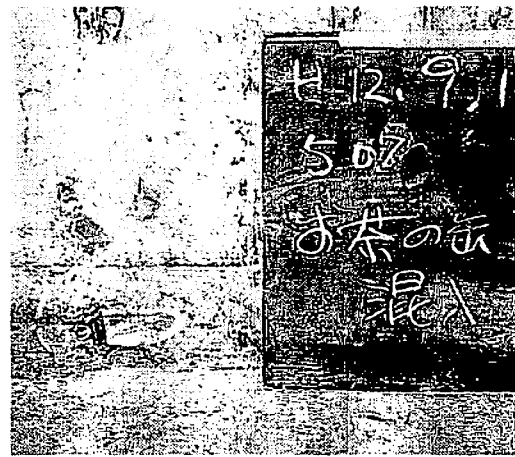 H12.9.1
507
お茶の缶
混入